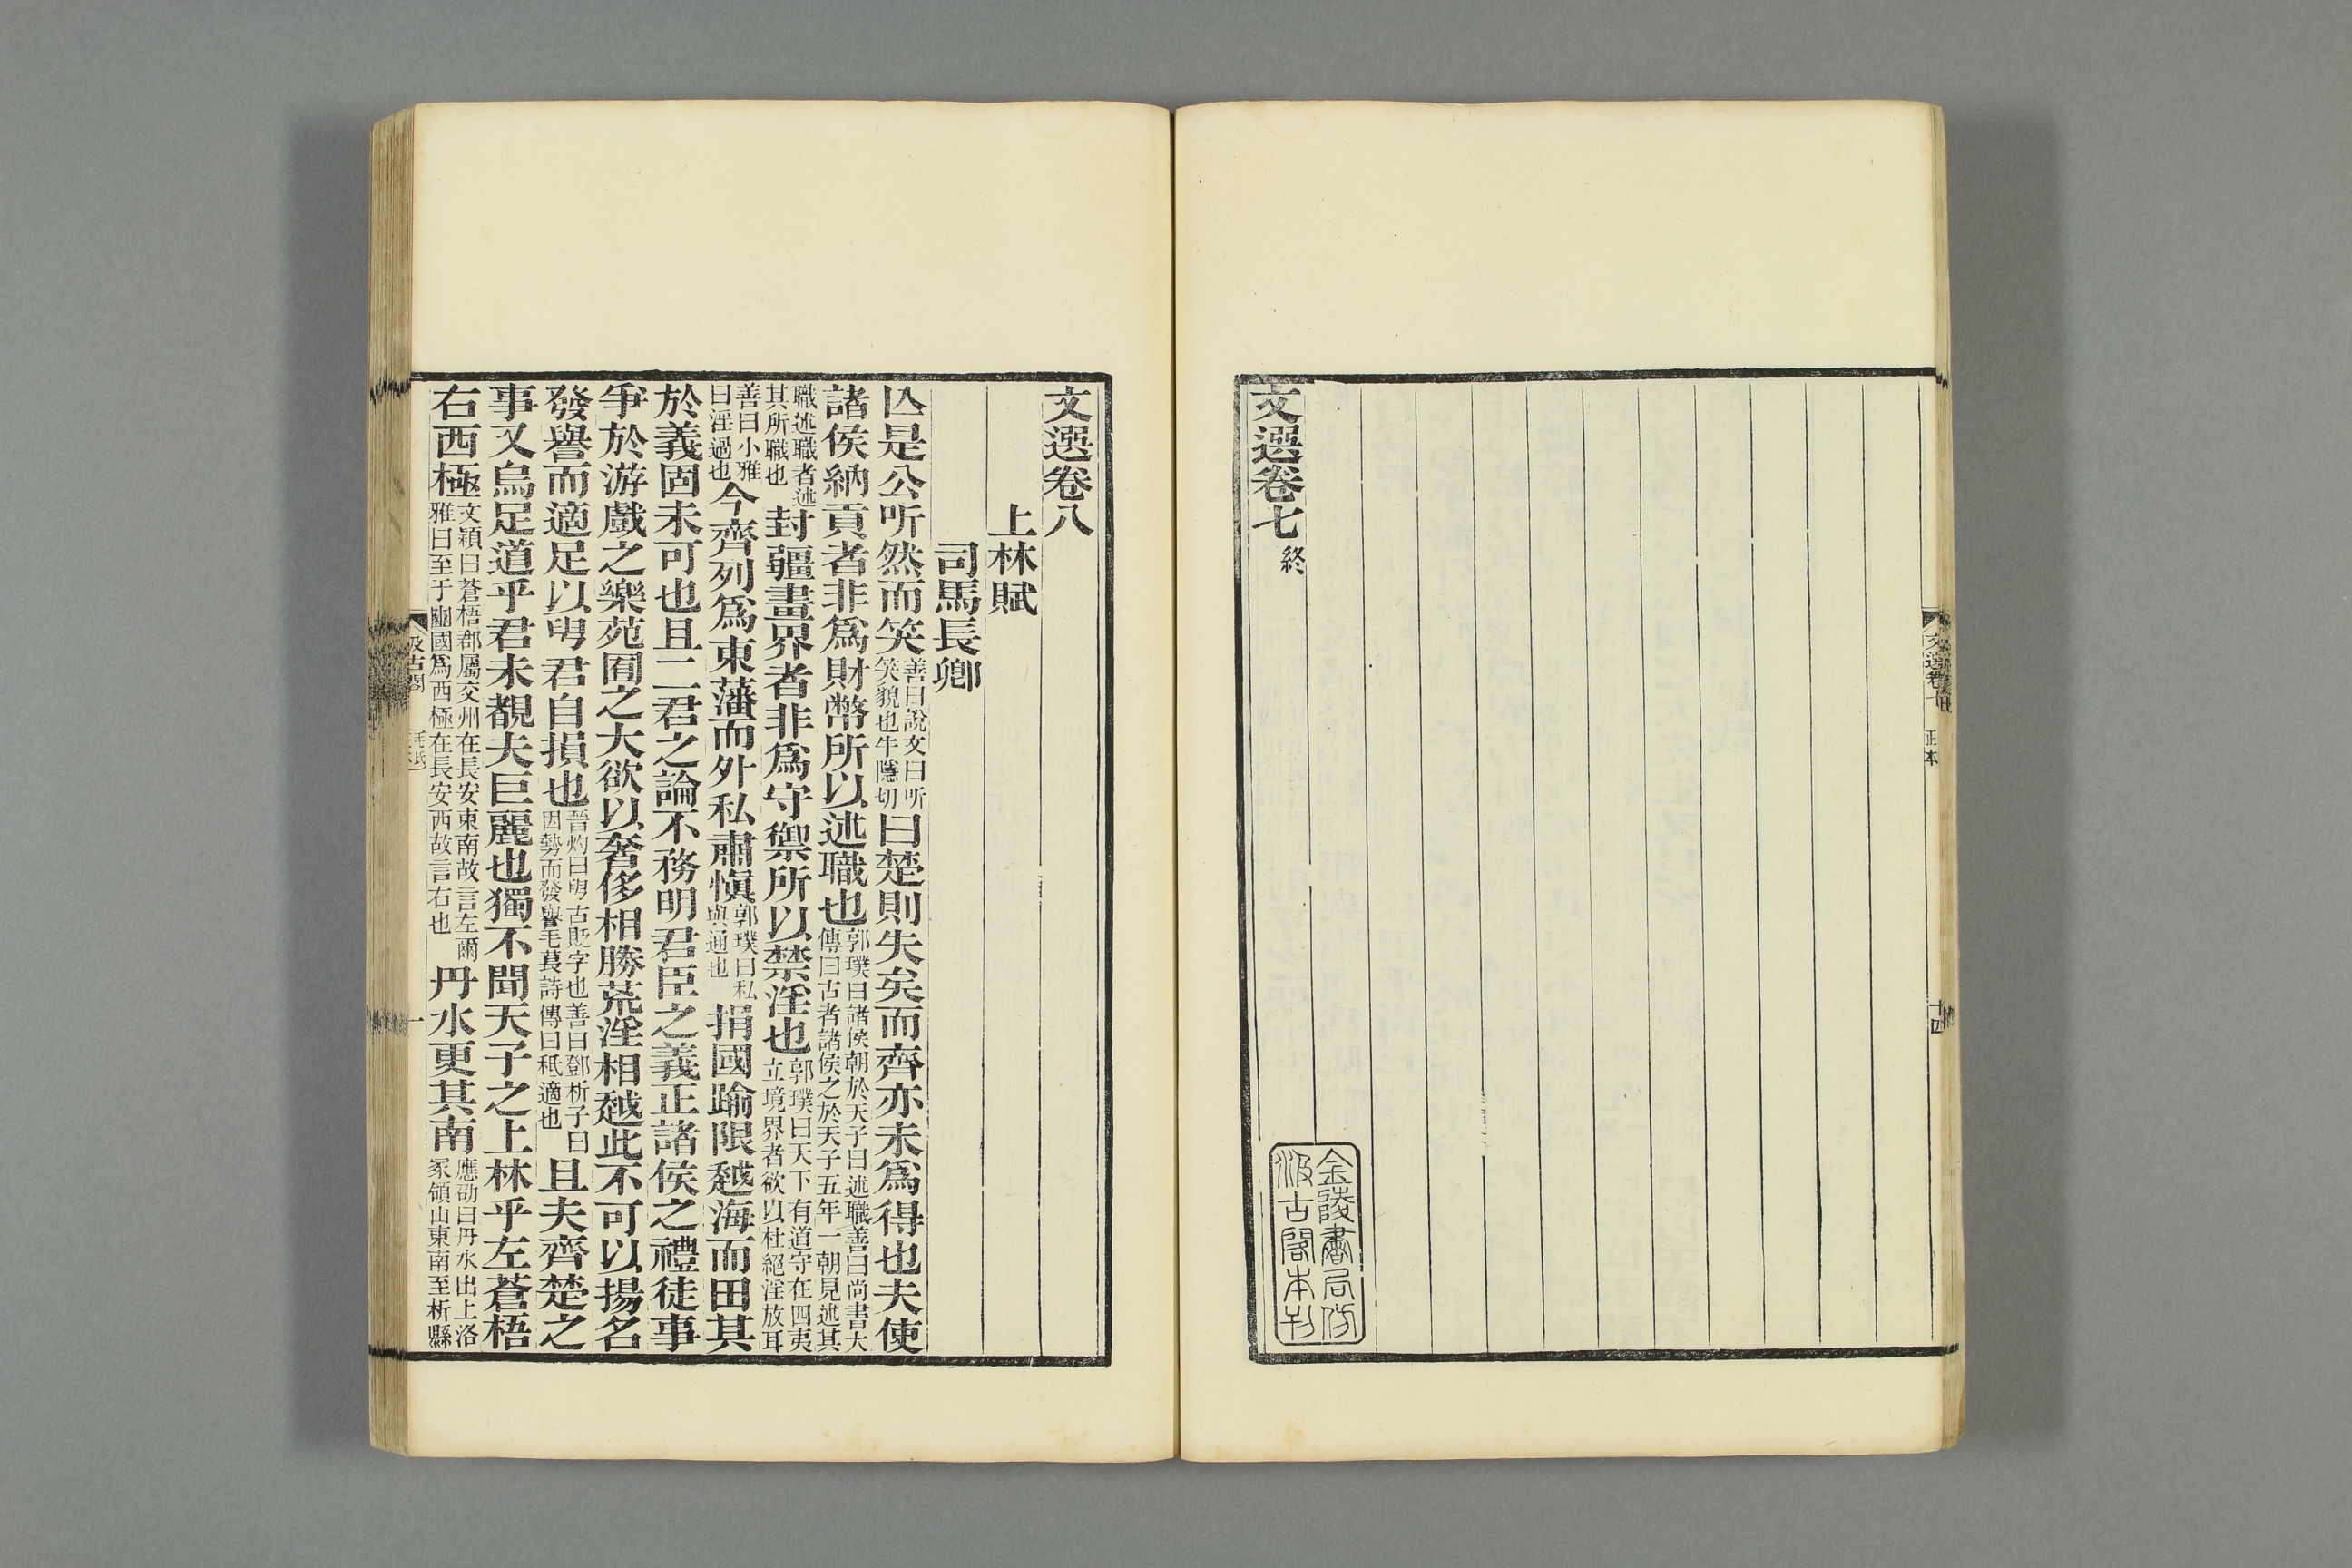 文選卷七
正本
十四
文選卷七終
金陵書局仿
汲古閣本刊
文選卷八
上林賦
司馬長卿
亾是公听然而笑善曰說文曰听笑貌也牛隱切曰楚則失矣而齊亦未爲得也夫使
諸侯納貢者非爲財幣所以述職也郭璞曰諸侯朝於天子曰述職善曰尚書大傳曰古者諸侯之於天子五年一朝見述其
職述職者述其所職也封疆畫界者非爲守禦所以禁淫也郭璞曰天下有道守在四夷立境界者欲以杜絕淫放耳
善曰小雅曰淫過也今齊列爲東藩而外私肅愼郭璞曰私與通也捐國踰限越海而田其
於義固未可也且二君之論不務明君臣之義正諸侯之禮徒事
爭於游戲之樂苑囿之大欲以奢侈相勝荒淫相越此不可以揚名
發譽而適足以㕹君自損也晉灼曰㕹古貶字也善曰鄧析子曰因勢而發譽毛萇詩傳曰秖適也且夫齊楚之
事又烏足道乎君未覩夫巨麗也獨不聞天子之上林乎左蒼梧
右西極文穎曰蒼梧郡屬交州在長安東南故言左爾雅曰至于豳國爲西極在長安西故言右也丹水更其南應劭曰丹水出上洛冢領山東南至析縣
汲古閣
一